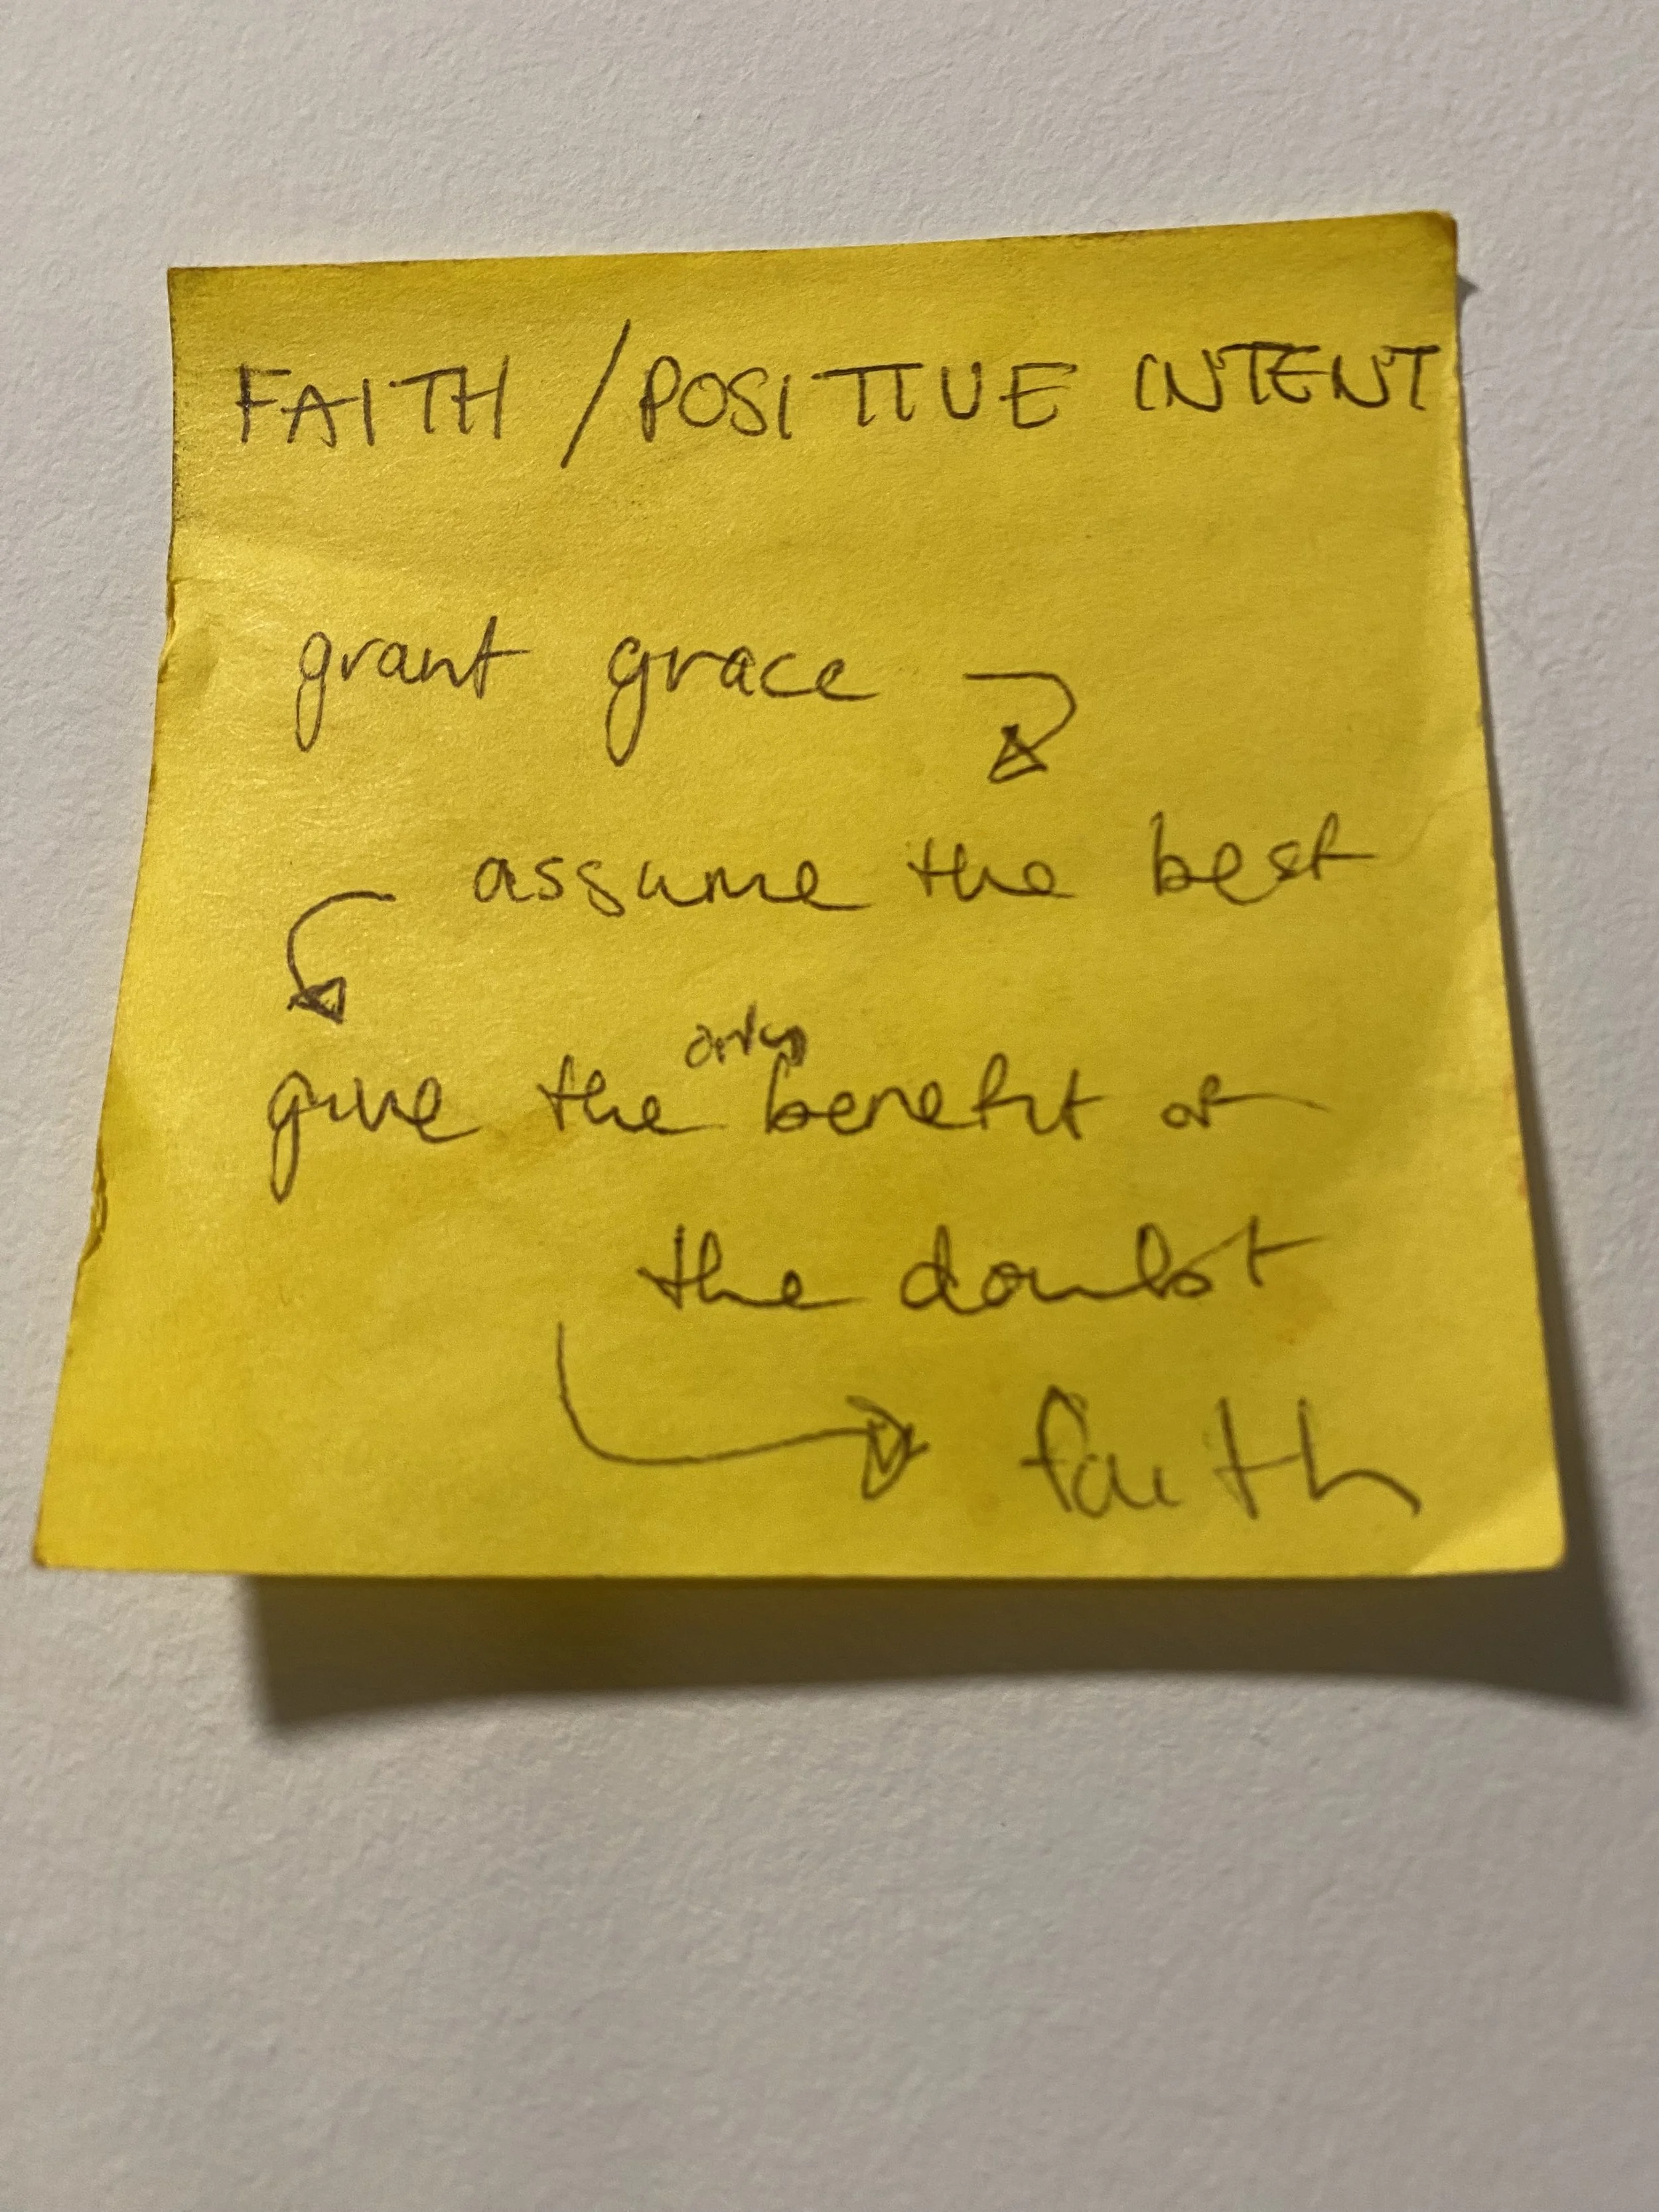 FAITH / POSITIVE INTENT
grant grace
assume the best
only
give the benefit of
the doubt
faith